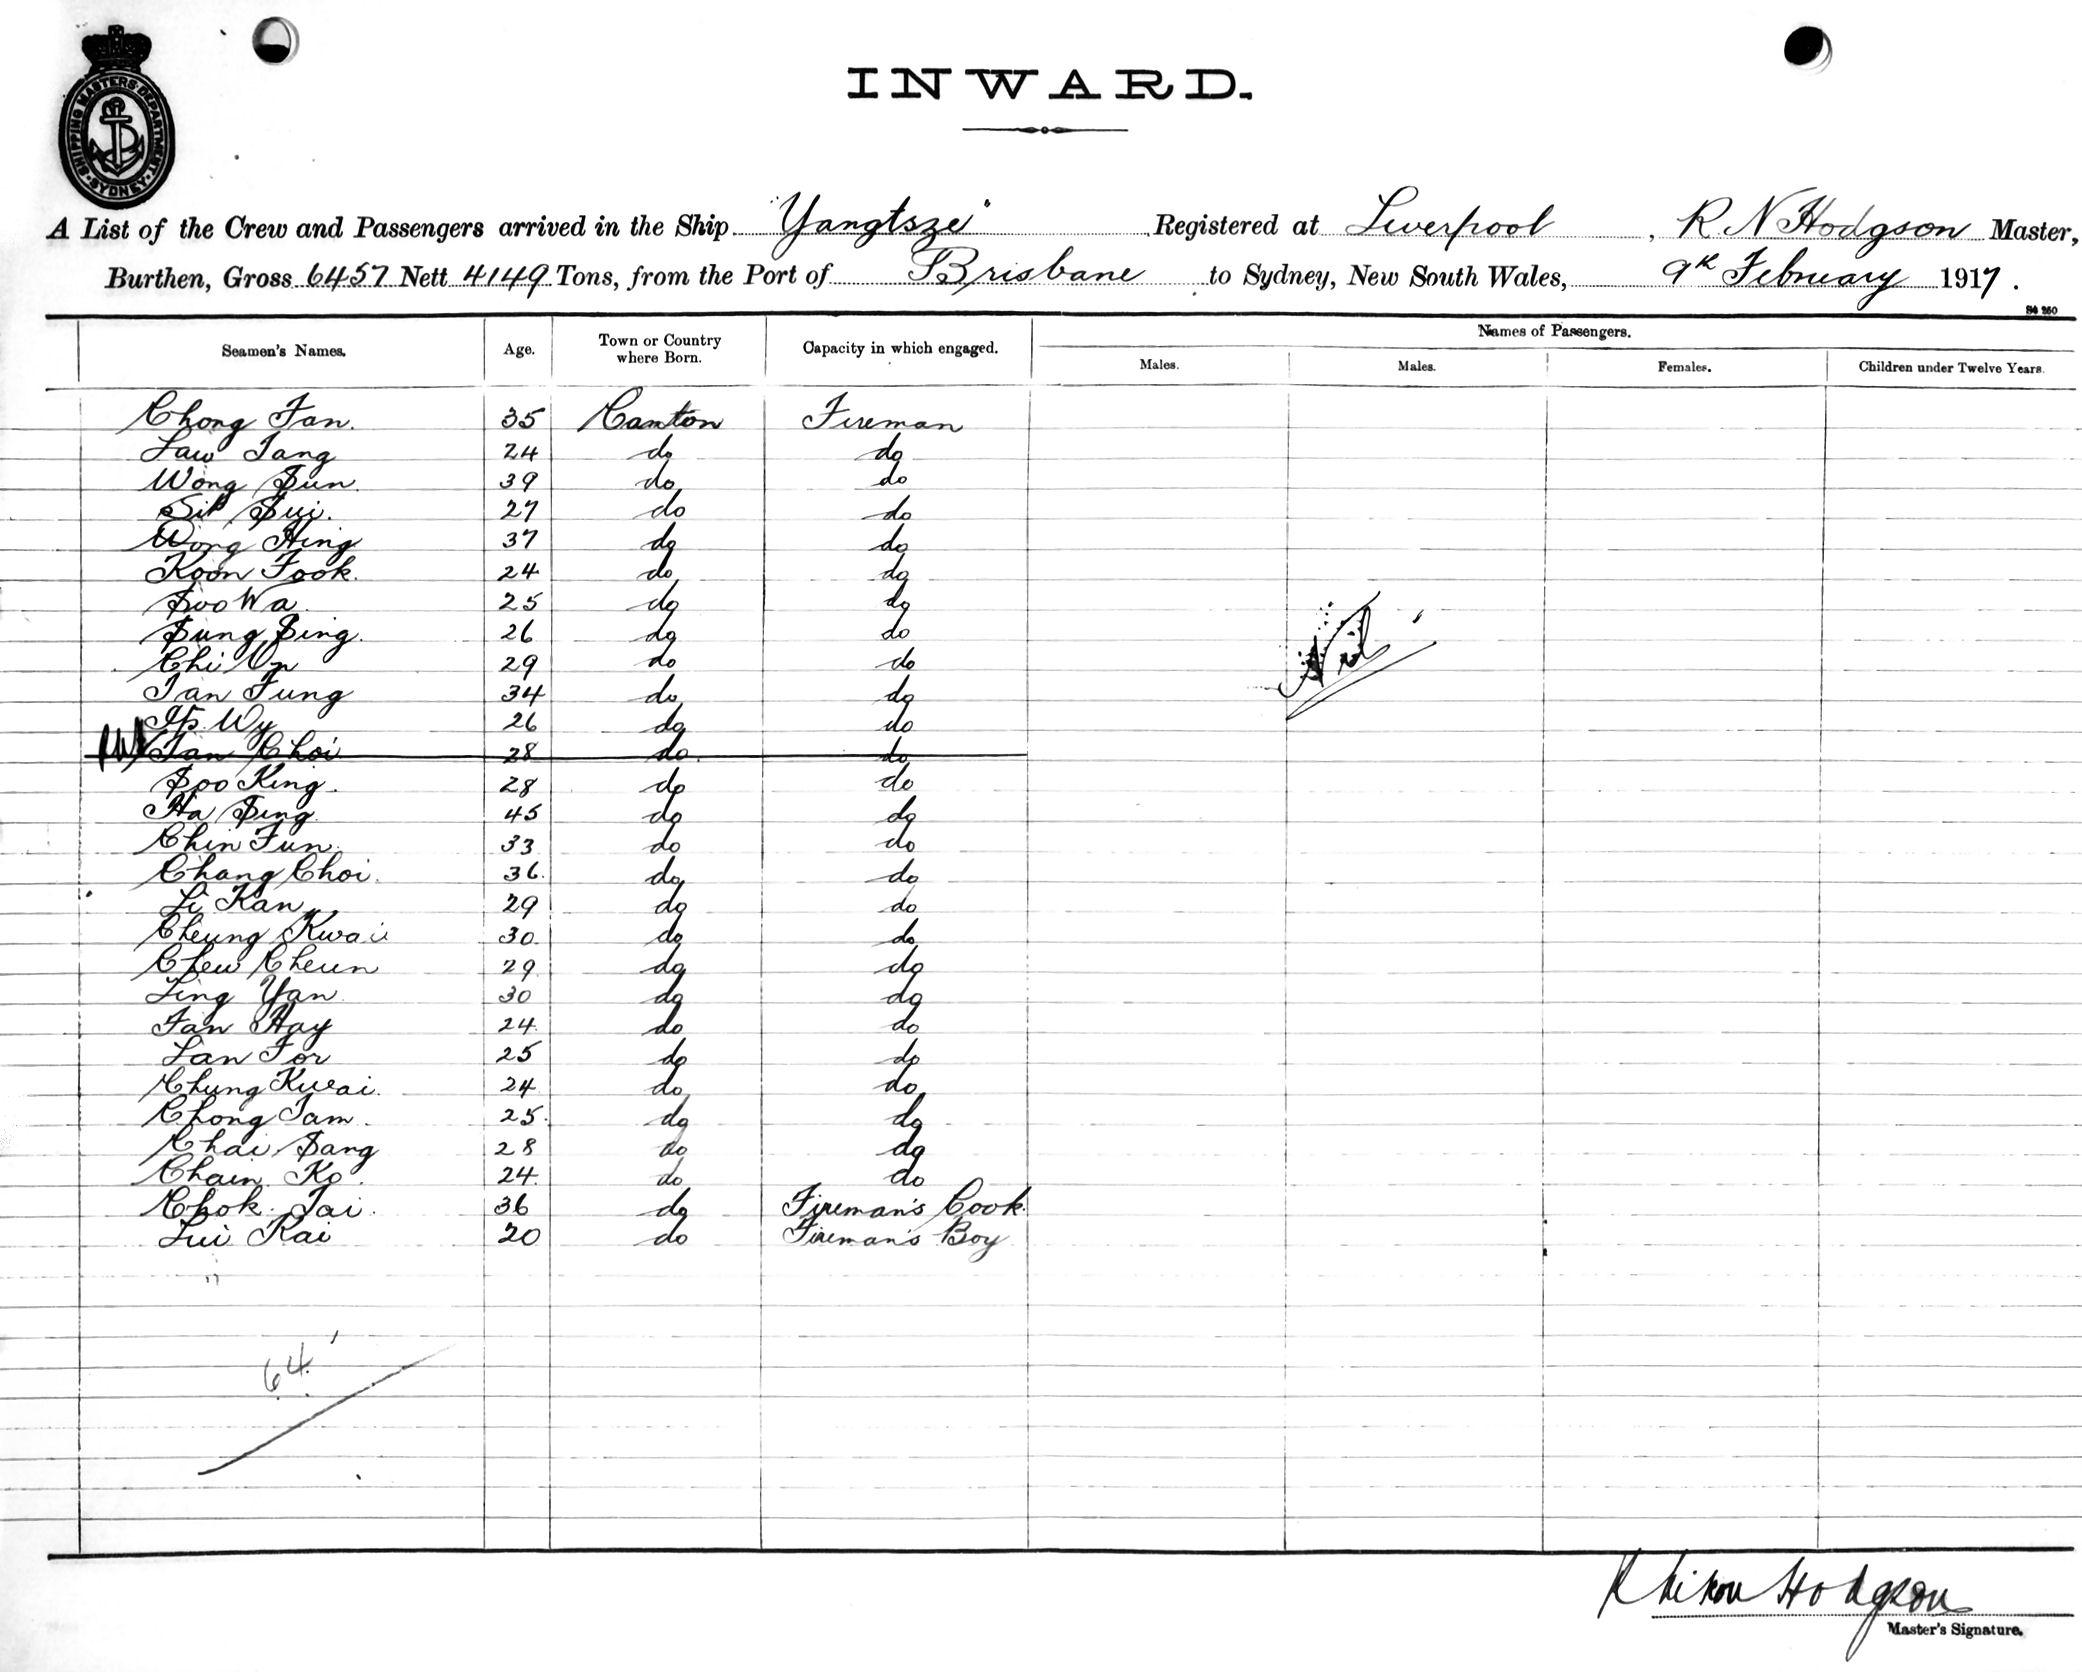 SHIPPING MASTERS DEPARTMENT
SYDNEY
INWARD.
A List of the Crew and Passengers arrived in the Ship "Yangtsze" Registered at Liverpool, R N Hodgson Master,
Burthen, Gross 6457 Nett 4149 Tons, from the Port of Brisbane to Sydney, New South Wales, 9th February 1917.
S4 250
Seamen's Names. Age. Town or Country where Born. Capacity in which engaged. Names of Passengers.
Males. Males. Females. Children under Twelve Years.
Chong Fan. 35 Canton Fireman
Law Tang 24 do do
Wong Sun. 39 do do
Sit Sui. 27 do do
Wong Hing 37 do do
Koon Fook. 24 do do
Soo Wa 25 do do
Sung Sing. 26 do do
Chi On 29 do do
Tan Fung 34 do do
Wy 26 do do
Tan Choi 28 do do
Soo King. 28 do do
Ha Sing 45 do do
Chin Fun. 33 do do
Chang Choi. 36. do do
Li Kan 29 do do
Cheung Kwai 30. do do
Chew Cheun 29 do do
Ling Yan 30 do do
Fan Hay 24. do do
Lan For 25 do do
Chung Kwai. 24 do do
Chong Tam. 25. do do
Chai Sang 28 do do
Chain Ko. 24. do do
Chok Tai. 36 do Fireman's Cook.
Lui Kai 20 do Fireman's Boy
Nil
64
Hodgson
Master's Signature.